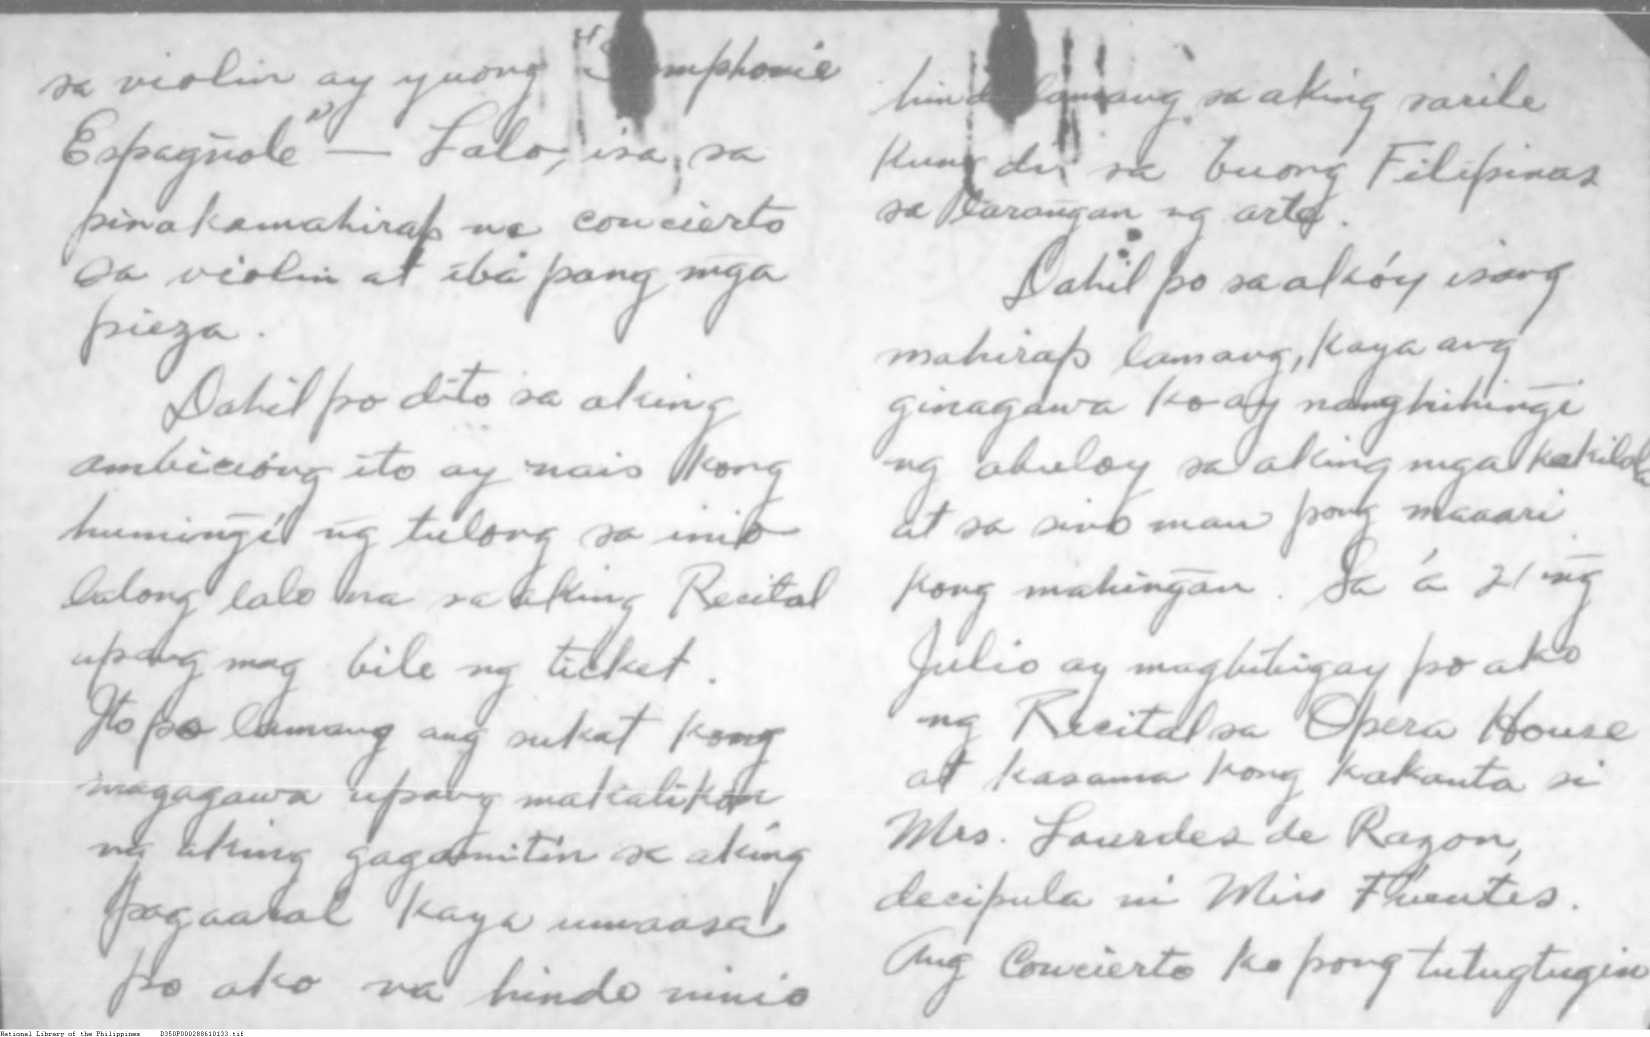 sa violin ay yuong "Symphonie
Espagñole" — Lalo, isa sa
pinakamahirap na concierto
sa violin at ibá pang mg̃a
pieza.
Dahil po dito sa aking
ambicióng ito ay nais kong
huming̃í ng̃ tulong sa inio
lalong lalo na sa aking Recital
upang mag bile ng ticket.
Ito po lamang ang sukat kong
magagawa upang makalikom
ng aking gagamitin sa aking
pagaaral kaya umaasa
po ako na hinde ninio
hindi lamang sa aking sarile
kung di sa buong Filipinas
sa larang̃an ng arte.
Dahil po sa akóy isang
mahirap lamang, kaya ang
ginagawa ko ay nanghihing̃i
ng abuloy sa aking mga kakilala
at sa sino man pong maaari
kong mahing̃an. Sa á 21 ng̃
Julio ay magbibigay po ako
ng Recital sa Opera House
at kasama kong kakanta si
Mrs. Lourdes de Razon,
decipula ni Miss Fuentes.
Ang Concierto ko pong tutugtugin
National Library of the Philippines D350P000288610133.tif